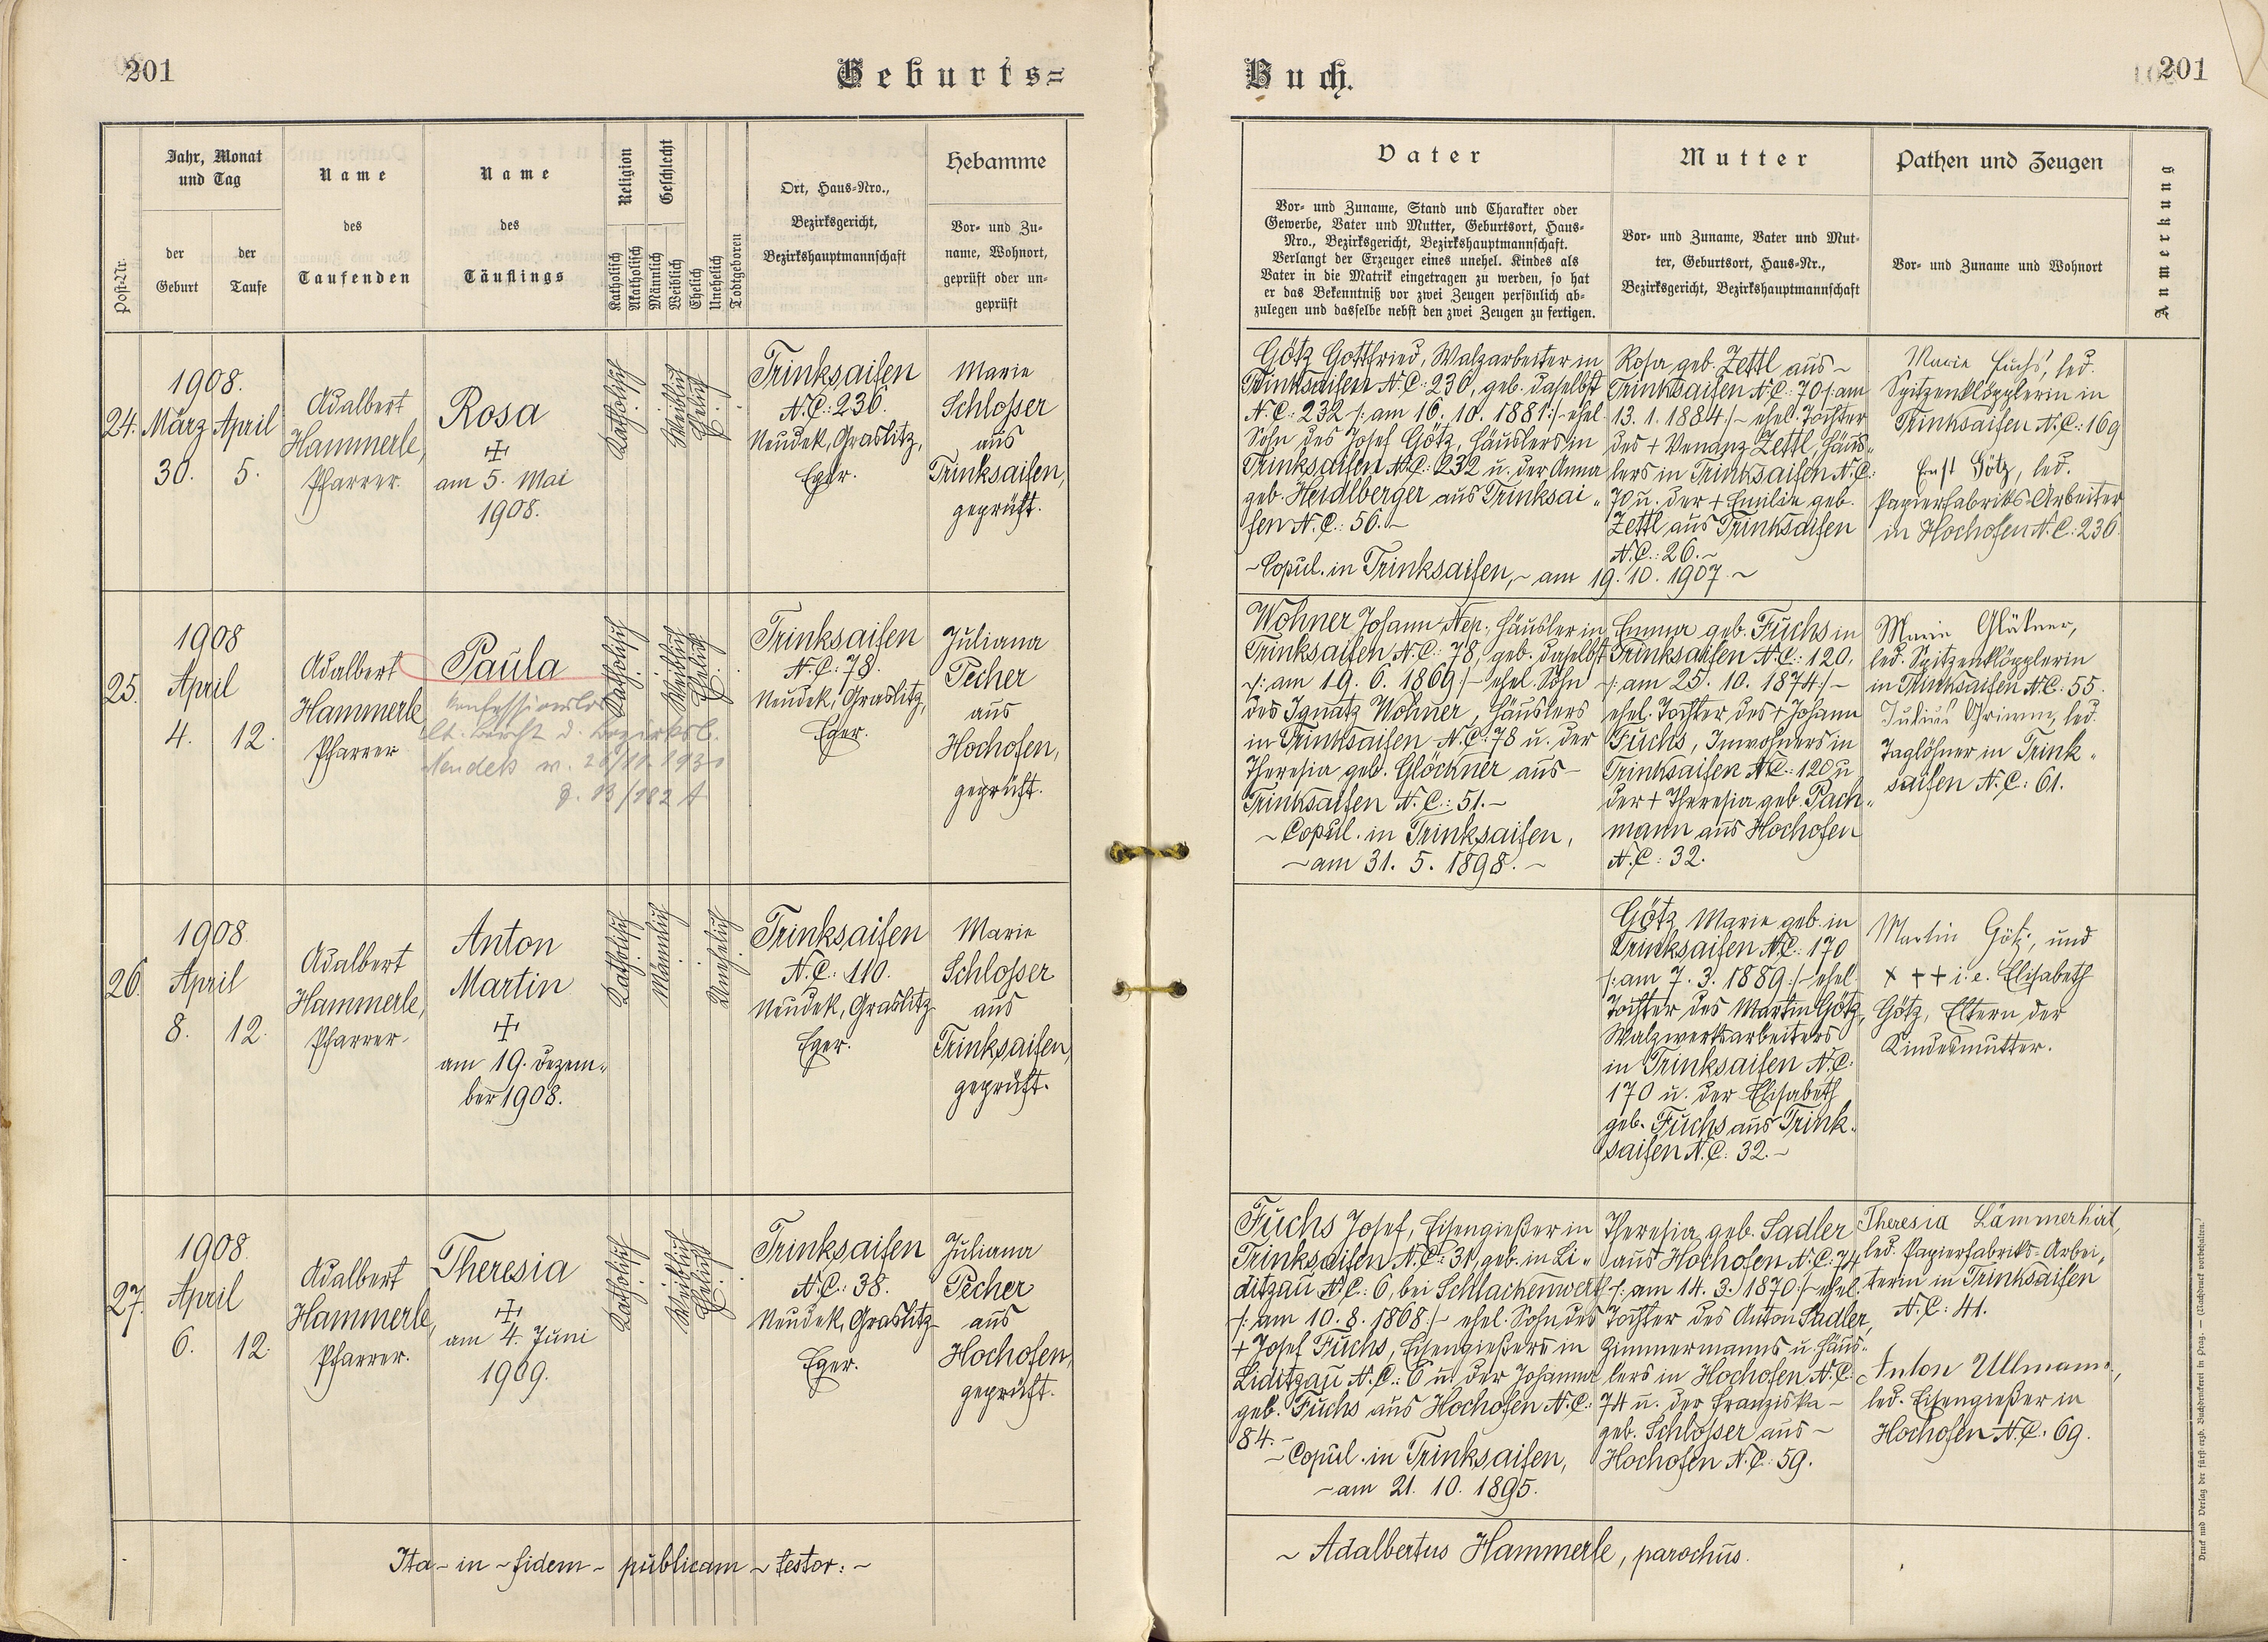 201
Geburts=
Jahr, Monat
und Tag
Post-Nr.
der
Geburt
der
Taufe
Name
des
Taufenden
Name
des
Täuflings
Religion
Katholisch
Akatholisch
Geschlecht
Männlich
Weiblich
Ehelich
Unehelich
Todtgeboren
Ort, Haus-Nro.,
Bezirksgericht,
Bezirkshauptmannschaft
Hebamme
Vor- und Zu-
name, Wohnort,
geprüft oder un-
geprüft
24.
1908.
März April
30. 5.
Adalbert
Hammerle,
Pfarrer.
Rosa
am 5. Mai
1908.
Katholisch
Weiblich
Ehelich
Trinksaifen
N.C.: 236.
Neudek, Graslitz,
Eger.
Marie
Schlosser
aus
Trinksaifen,
geprüft.
25.
1908
April
4. 12.
Adalbert
Hammerle
Pfarrer
Paula
konfessionslos
lt. Bericht d. Bezirksb.
Neudek v.
Katholisch
Weiblich
Ehelich
Trinksaifen
N.C: 78.
Neudek, Graslitz,
Eger.
Juliana
Pecher
aus
Hochofen,
geprüft.
26.
1908
April
8. 12.
Adalbert
Hammerle,
Pfarrer.
Anton
Martin
am 19. Dezem„
ber 1908.
Katholisch
Männlich
Unehelich
Trinksaifen
N.C.: 110.
Neudek, Graslitz
Eger.
Marie
Schlosser
aus
Trinksaifen,
geprüft.
27.
1908
April
6. 12.
Adalbert
Hammerle,
Pfarrer.
Theresia
am 4. Juni
1909.
Katholisch
Weiblich
Ehelich
Trinksaifen
N.C.: 38.
Neudek, Graslitz
Eger.
Juliana
Pecher
aus
Hochofen,
geprüft.
Ita - in - fidem - publicam - testor: -
Buch.
201
Vater
Vor- und Zuname, Stand und Charakter oder
Gewerbe, Vater und Mutter, Geburtsort, Haus-
Nro., Bezirksgericht, Bezirkshauptmannschaft.
Verlangt der Erzeuger eines unehel. Kindes als
Vater in die Matrik eingetragen zu werden, so hat
er das Bekenntniß vor zwei Zeugen persönlich ab-
zulegen und dasselbe nebst den zwei Zeugen zu fertigen.
Mutter
Vor- und Zuname, Vater und Mut-
ter, Geburtsort, Haus-Nr.,
Bezirksgericht, Bezirkshauptmannschaft
Pathen und Zeugen
Vor- und Zuname und Wohnort
Anmerkung
Götz Gottfried, Walzarbeiter in
Trinksaifen N.C: 236, geb. daselbst
N.C: 232 /: am 16. 10. 1881:/- ehel.
Sohn des Josef Götz, Häuslers in
Trinksaifen N.C: 232 u. der Anna
geb. Heidlberger aus Trinksai„
fen N.C.: 56.-
- Copul. in Trinksaifen, - am 19. 10. 1907. -
Rosa geb. Zettl aus -
Trinksaifen N.C: 70 /: am
13. 1. 1884:/- ehel. Tochter
des + Venanz Zettl, Häus„
lers in Trinksaifen N.C:
70 u. der + Emilie geb.
Zettl aus Trinksaifen
N.C.: 26.-
Marie Fuchs, led.
Spitzenklögglerin in
Trinksaifen N.C: 169
Ernst Götz, led.
Papierfabriks-Arbeiter
in Hochofen N.C: 236.
Wohner Johann Nep., Häusler in
Trinksaifen N.C: 78, geb. daselbst
-/: am 19. 6. 1869:/- ehel. Sohn
des Ignatz Wohner, Häuslers
in Trinksaifen N.C: 78 u. der
Theresia geb. Glöckner aus -
Trinksaifen N.C.: 51.-
- Copul. in Trinksaifen,
- am 31. 5. 1898. -
Emma geb. Fuchs in
Trinksaifen N.C: 120,
-/: am 25. 10. 1874:/-
ehel. Tochter des + Johann
Fuchs, Inwohners in
Trinksaifen N.C: 120 u
der + Theresia geb. Pach„
mann aus Hochofen
N.C: 32.
Marie
led. Spitzenklögglerin
in Trinksaifen N.C: 55.
Julius Grimm, led.
Taglöhner in Trink„
saifen N.C: 61.
Götz Marie geb. in
Trinksaifen N.C: 170
/: am 7. 3. 1889:/- ehel.
Tochter des Martin Götz,
Walzwerksarbeiters
in Trinksaifen N.C:
170 u. der Elisabeth
geb. Fuchs aus Trink„
saifen N.C: 32.-
Martin Götz, und
+ + + i. e. Elisabeth
Götz, Eltern der
Kindesmutter.
Fuchs Josef, Eisengießer in
Trinksaifen N.C: 31, geb. in Li„
ditzgau N.C: 6, bei Schlackenwerth
-/: am 10. 8. 1868:/- ehel. Sohn des
+ Josef Fuchs, Eisengießers in
Liditzgau N.C.: 6 u. der Johanna
geb. Fuchs aus Hochofen N.C:
84.-
- Copul. in Trinksaifen,
- am 21. 10. 1895.
Theresia geb. Sadler
aus Hochofen N.C: 74
-/: am 14. 3. 1870:/- ehel.
Tochter des Anton Sadler,
Zimmermanns u. Häus„
lers in Hochofen N.C:
74 u. der Franziska -
geb. Schlosser aus -
Hochofen N.C: 59.
Theresia Lämmerhirt,
led. Papierfabriks-Arbei„
terin in Trinksaifen
N.C: 41.
Anton Ullmann,
led. Eisengießer in
Hochofen N.C. 69.
- Adalbertus Hammerle, parochus.
Druck und Verlag der fürst-erzb. Buchdruckerei in Prag. — (Nachdruck vorbehalten.)